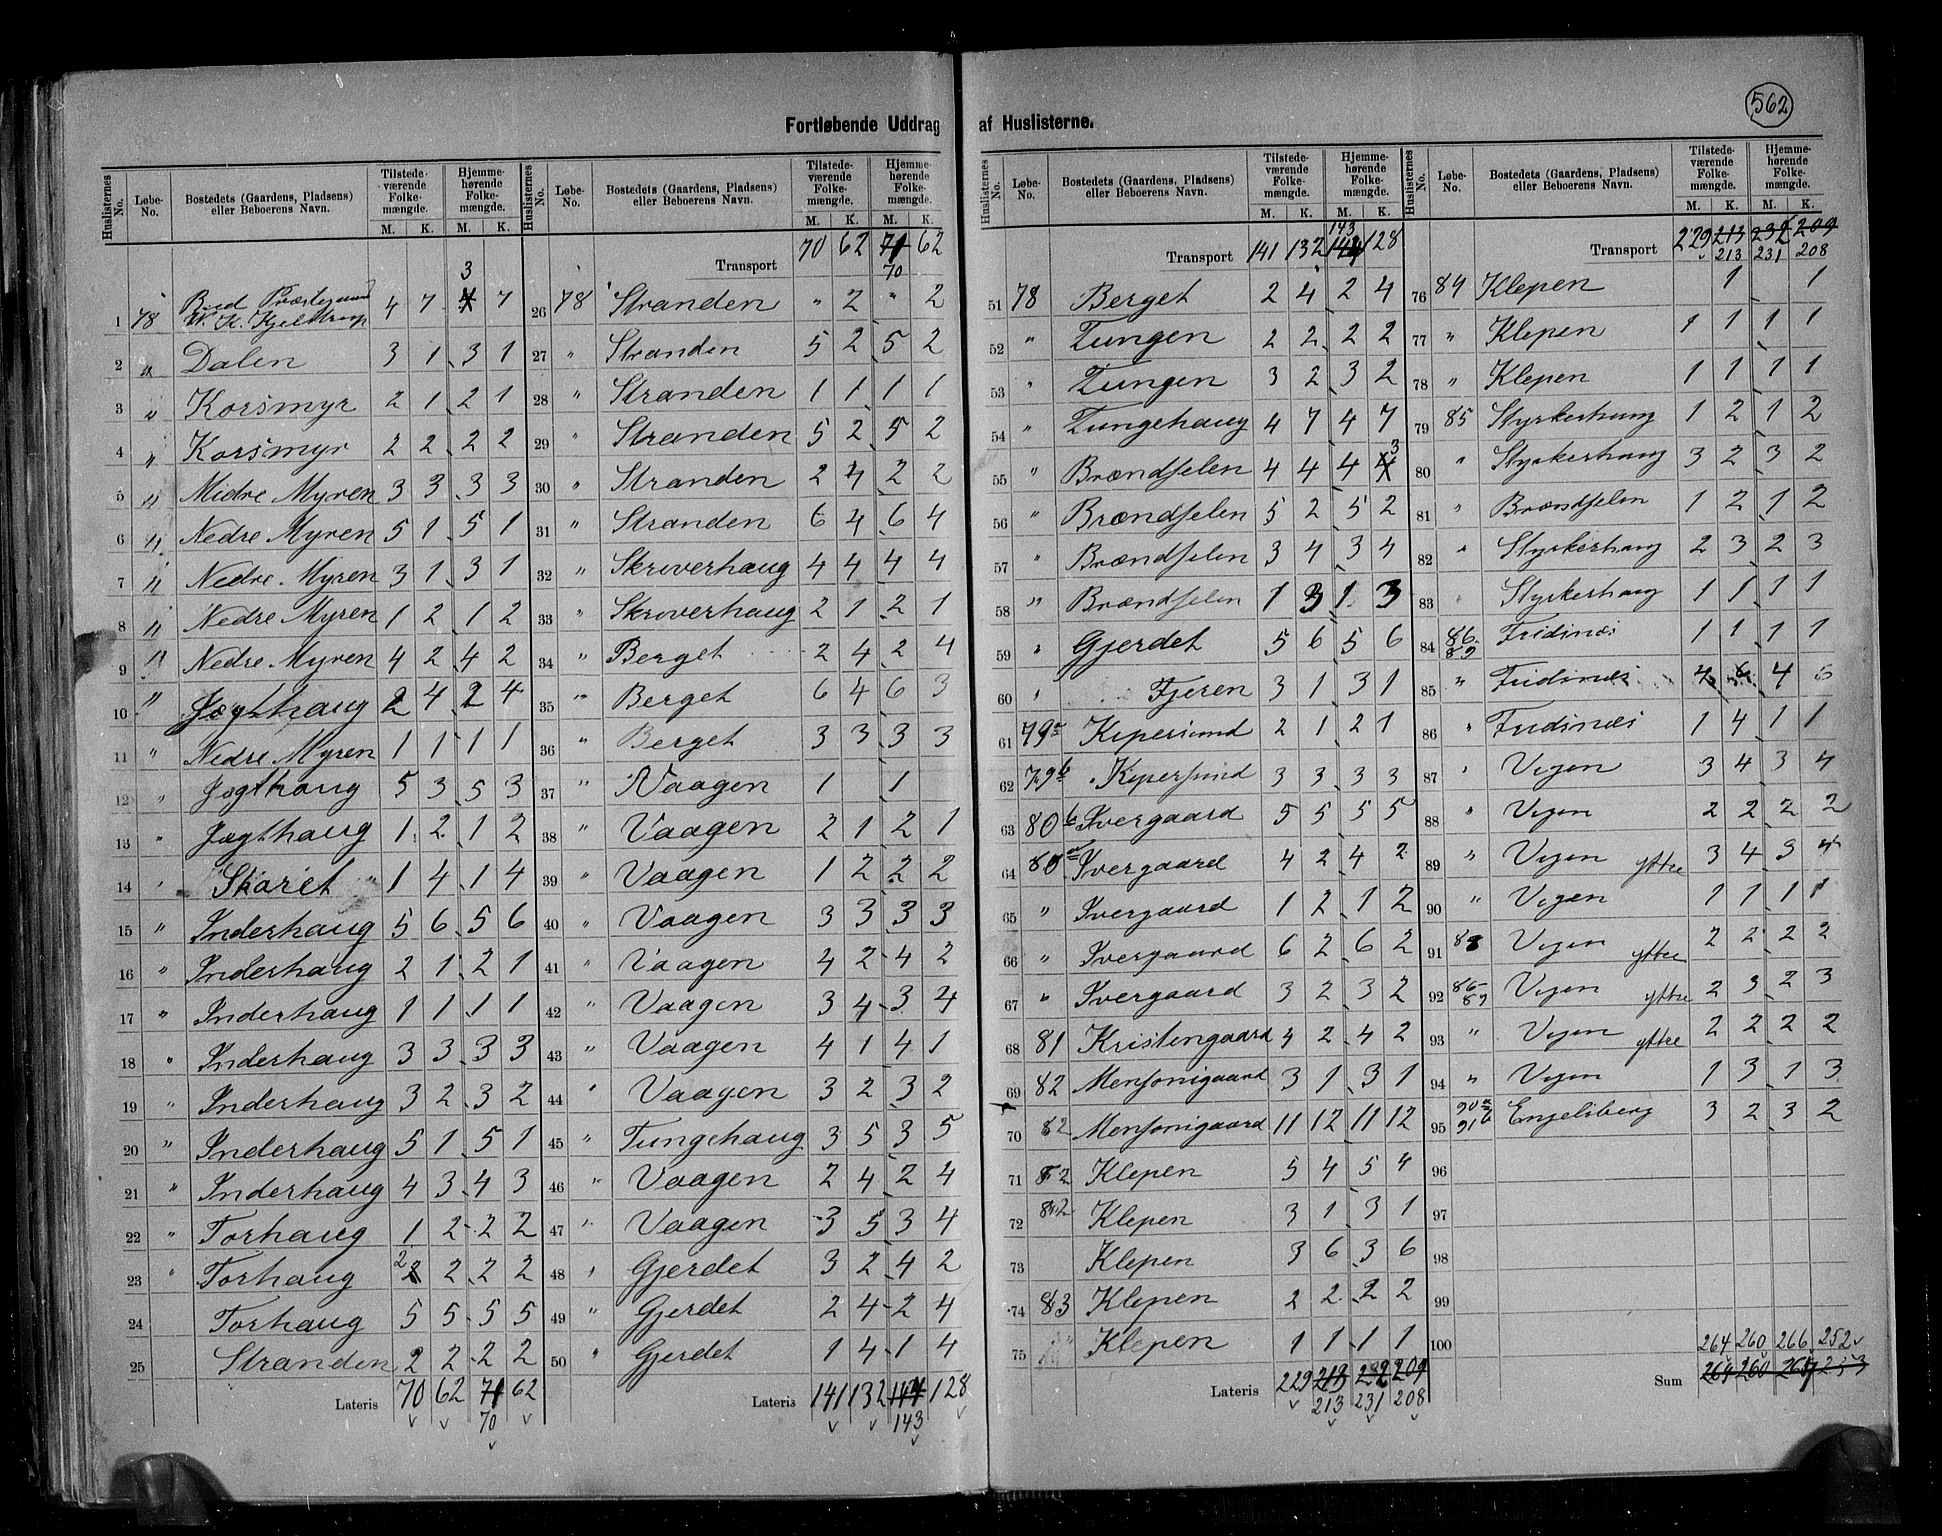 562
Fortløbende Uddrag af Huslisterne.
Huslisternes No. Løbe-No. Bostedets (Gaardens, Pladsens) eller Beboerens Navn. Tilstedeværende Folkemængde. M. K. Hjemmehørende Folkemængde. M. K.
3
1 78 4 7 4 7
2 " Dalen 3 1 3 1
3 " Korsmyr 2 1 2 1
4 " Korsmyr 2 2 2 2
5 " Midre Myren 3 3 3 3
6 " Nedre Myren 5 1 5 1
7 " Nedre Myren 3 1 3 1
8 " Nedre Myren 1 2 1 2
9 " Nedre Myren 4 2 4 2
10 " Jægthaug 2 4 2 4
11 " Nedre Myren 1 1 1 1
12 " Jægthaug 5 3 5 3
13 " Jægthaug 1 2 1 2
14 " Skaret 1 4 1 4
15 " Inderhaug 5 6 5 6
16 " Inderhaug 2 1 2 1
17 " Inderhaug 1 1 1 1
18 " Inderhaug 3 3 3 3
19 " Inderhaug 3 2 3 2
20 " Inderhaug 5 1 5 1
21 " Inderhaug 4 3 4 3
22 " Torhaug 1 2 2 2
23 " Torhaug 2 2 2 2
24 Torhaug 5 5 5 5
25 Stranden 2 2 2 2
Lateris 70 62 71 62
70
Huslisternes No. Løbe-No. Bostedets (Gaardens, Pladsens) eller Beboerens Navn. Tilstedeværende Folkemængde. M. K. Hjemmehørende Folkemængde. M. K.
Transport 70 62 71 62
70
26 78 Stranden " 2 " 2
27 " Stranden 5 2 5 2
28 " Stranden 1 1 1 1
29 " Stranden 5 2 5 2
30 " Stranden 2 4 2 2
31 " Stranden 6 4 6 4
32 " Skriverhaug 4 4 4 4
33 " Skriverhaug 2 1 2 1
34 " Berget 2 4 2 4
35 " Berget 6 4 6 3
36 " Berget 3 3 3 3
37 " Vaagen 1 1
38 " Vaagen 2 1 2 1
39 " Vaagen 1 2 2 2
40 " Vaagen 3 3 3 3
41 " Vaagen 4 2 4 2
42 " Vaagen 3 4 3 4
43 " Vaagen 4 1 4 1
44 " Vaagen 3 2 3 2
45 " Tungehaug 3 5 3 5
46 " Vaagen 2 4 2 4
47 " Vaagen 3 5 3 4
48 " Gjerdet 3 2 4 2
49 " Gjerdet 2 4 2 4
50 " Gjerdet 1 4 1 4
Lateris 141 132 144 128
143
Huslisternes No. Løbe-No. Bostedets (Gaardens, Pladsens) eller Beboerens Navn. Tilstedeværende Folkemængde. M. K. Hjemmehørende Folkemængde. M. K.
143
Transport 141 132 144 128
51 78 Berget 2 4 2 4
52 " Tungen 2 2 2 2
53 " Tungen 3 2 3 2
54 " Tungehaug 4 7 4 7
55 " Brændselen 4 4 4 4 3
56 " Brændselen 5 2 5 2
57 " Brændselen 3 4 3 4
58 " Brændselen 1 3 1 3
59 " Gjerdet 5 6 5 6
60 " Fjeren 3 1 3 1
61 79a Kipersund 2 1 2 1
62 79b Kipersund 3 3 3 3
63 80b Ivergaard 5 5 5 5
64 80a Ivergaard 4 2 4 2
65 " Ivergaard 1 2 1 2
66 " Ivergaard 6 2 6 2
67 " Ivergaard 3 2 3 2
68 81 Kristengaard 4 2 4 2
69 82 Mensonigaard 3 1 3 1
70 82 Mensonigaard 11 12 11 12
71 82 Klepen 5 4 5 4
72 82 Klepen 3 1 3 1
73 Klepen 3 6 3 6
74 83 Klepen 2 2 2 2
75 Klepen 1 1 1 1
Lateris 229 213 232 209
213 231 208
Huslisternes No. Løbe-No. Bostedets (Gaardens, Pladsens) eller Beboerens Navn. Tilstedeværende Folkemængde. M. K. Hjemmehørende Folkemængde. M. K.
Transport 229 213 232 209
213 231 208
76 84 Klepen 1 1
77 " Klepen 1 1 1 1
78 " Klepen 1 1 1 1
79 85 Styrkerhaug 1 2 1 2
80 " Styrkerhaug 3 2 3 2
81 " Brændselen 1 2 1 2
82 " Styrkerhaug 2 3 2 3
83 " Styrkerhaug 1 1 1 1
84 86-89 Fridinæs 1 1 1 1
85 " Fridinæs 4 6 4 6
86 " Fridinæs 1 4 1 1
87 " Vigen 3 4 3 4
88 " Vigen 2 2 2 2
89 " Vigen yttre 3 4 3 4
90 " Vigen 1 1 1 1
91 88 Vigen yttre 2 2 2 2
92 86-89 Vigen yttre 2 3 2 3
93 " Vigen yttre 2 2 2 2
94 " Vigen 1 3 1 3
95 90a 91b Engelsberg 3 2 3 2
96
97
98
99
100
264 260 266 252
Sum 264 260 267 253